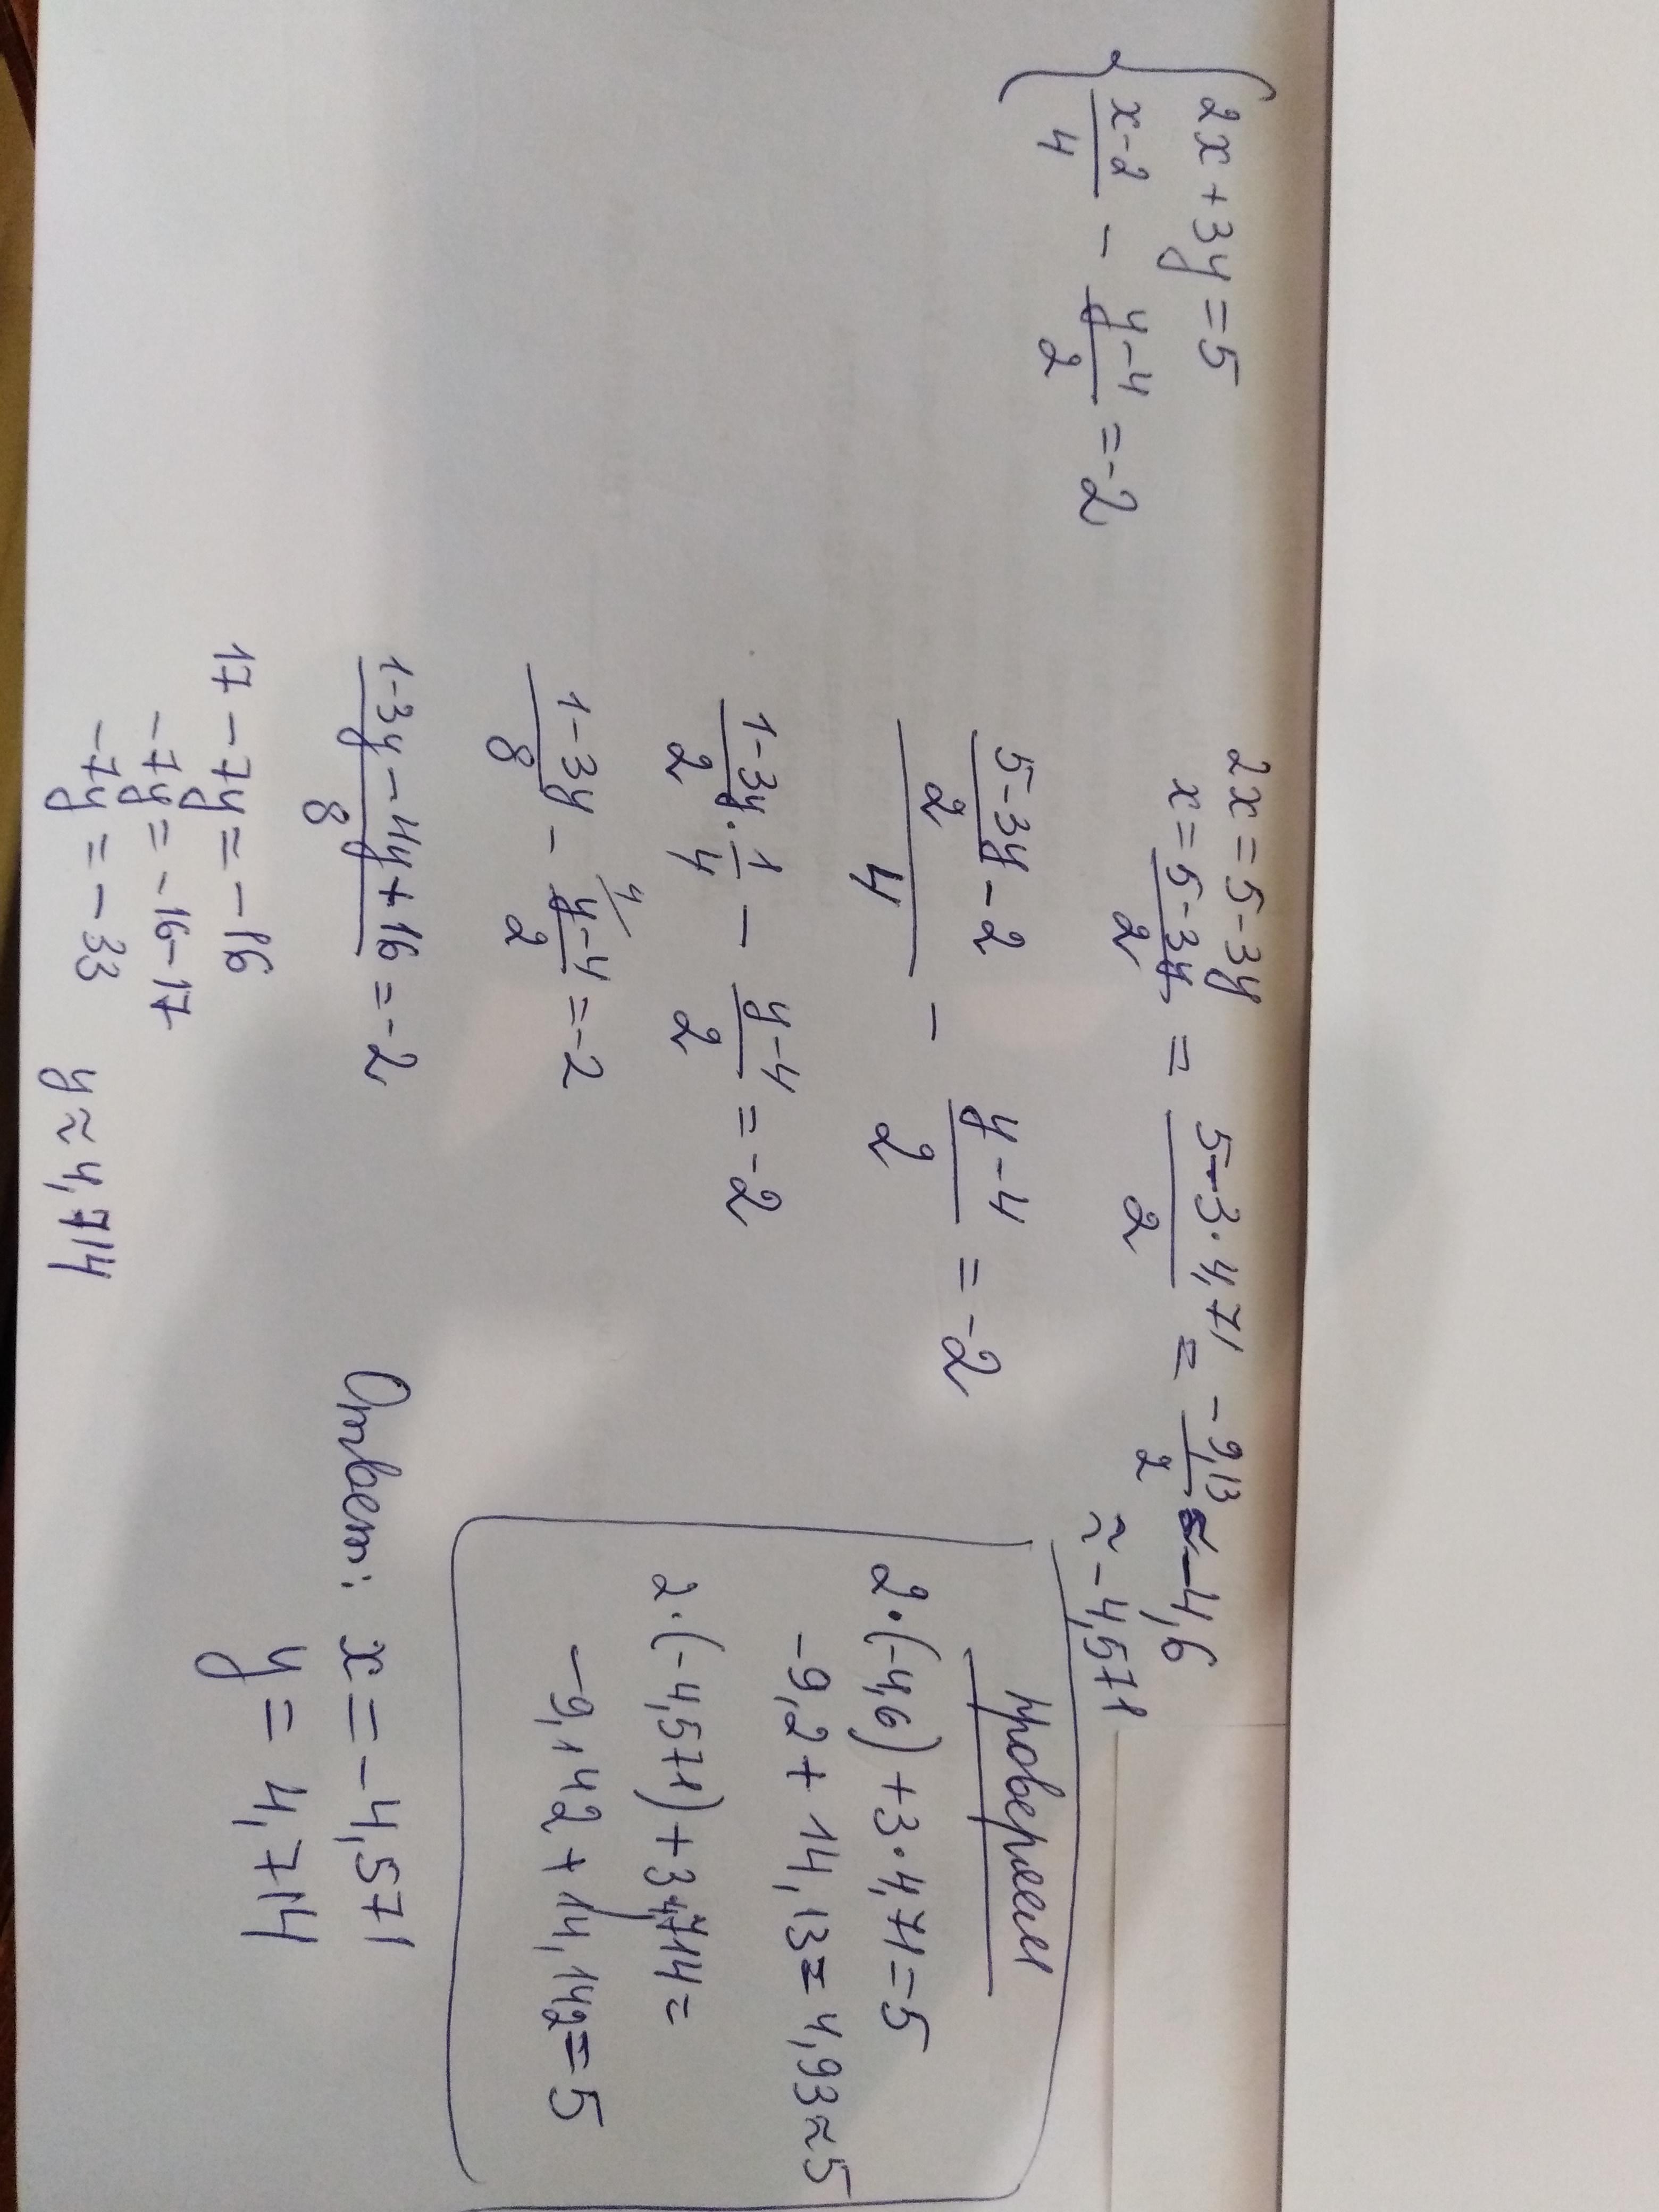 { 2x + 3y = 5
(x-2)/4 - (y-4)/2 = -2
2x = 5 - 3y
x = (5-3y)/2 = (5-3·4,71)/2 = -9,13/2 = -4,6
≈ -4,571
((5-3y)/2 - 2)/4 - (y-4)/2 = -2
(1-3y)/2 · 1/4 - (y-4)/2 = -2
(1-3y)/8 - (y-4)/2 = -2
(1-3y-4y+16)/8 = -2
17 - 7y = -16
-7y = -16-17
-7y = -33
y ≈ 4,714
проверяем
2·(-4,6)+3·4,71=5
-9,2+14,13=4,93≈5
2·(-4,571)+3·4,714=
-9,142+14,142=5
Ответ: x = -4,571
y = 4,714